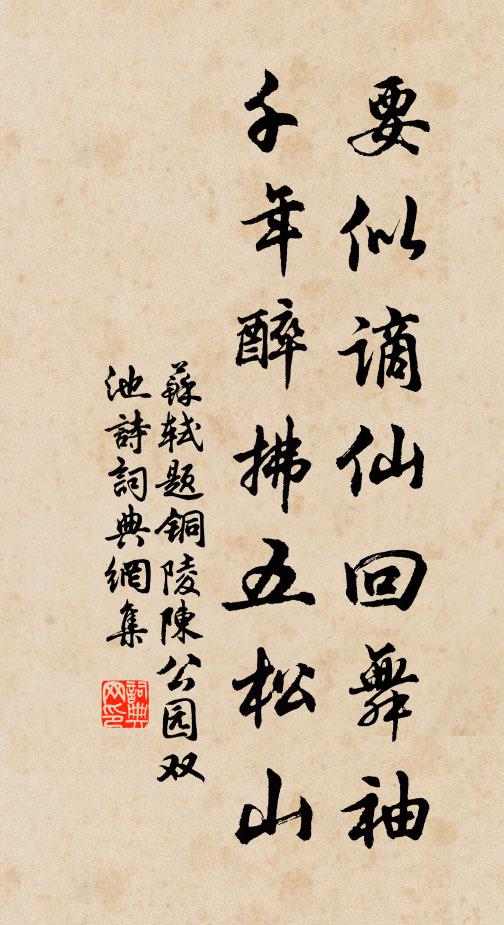 要似谪仙回舞袖
千年醉拂五松山
蘇轼题铜陵陳公园双
池詩詞典網集
詞典网印